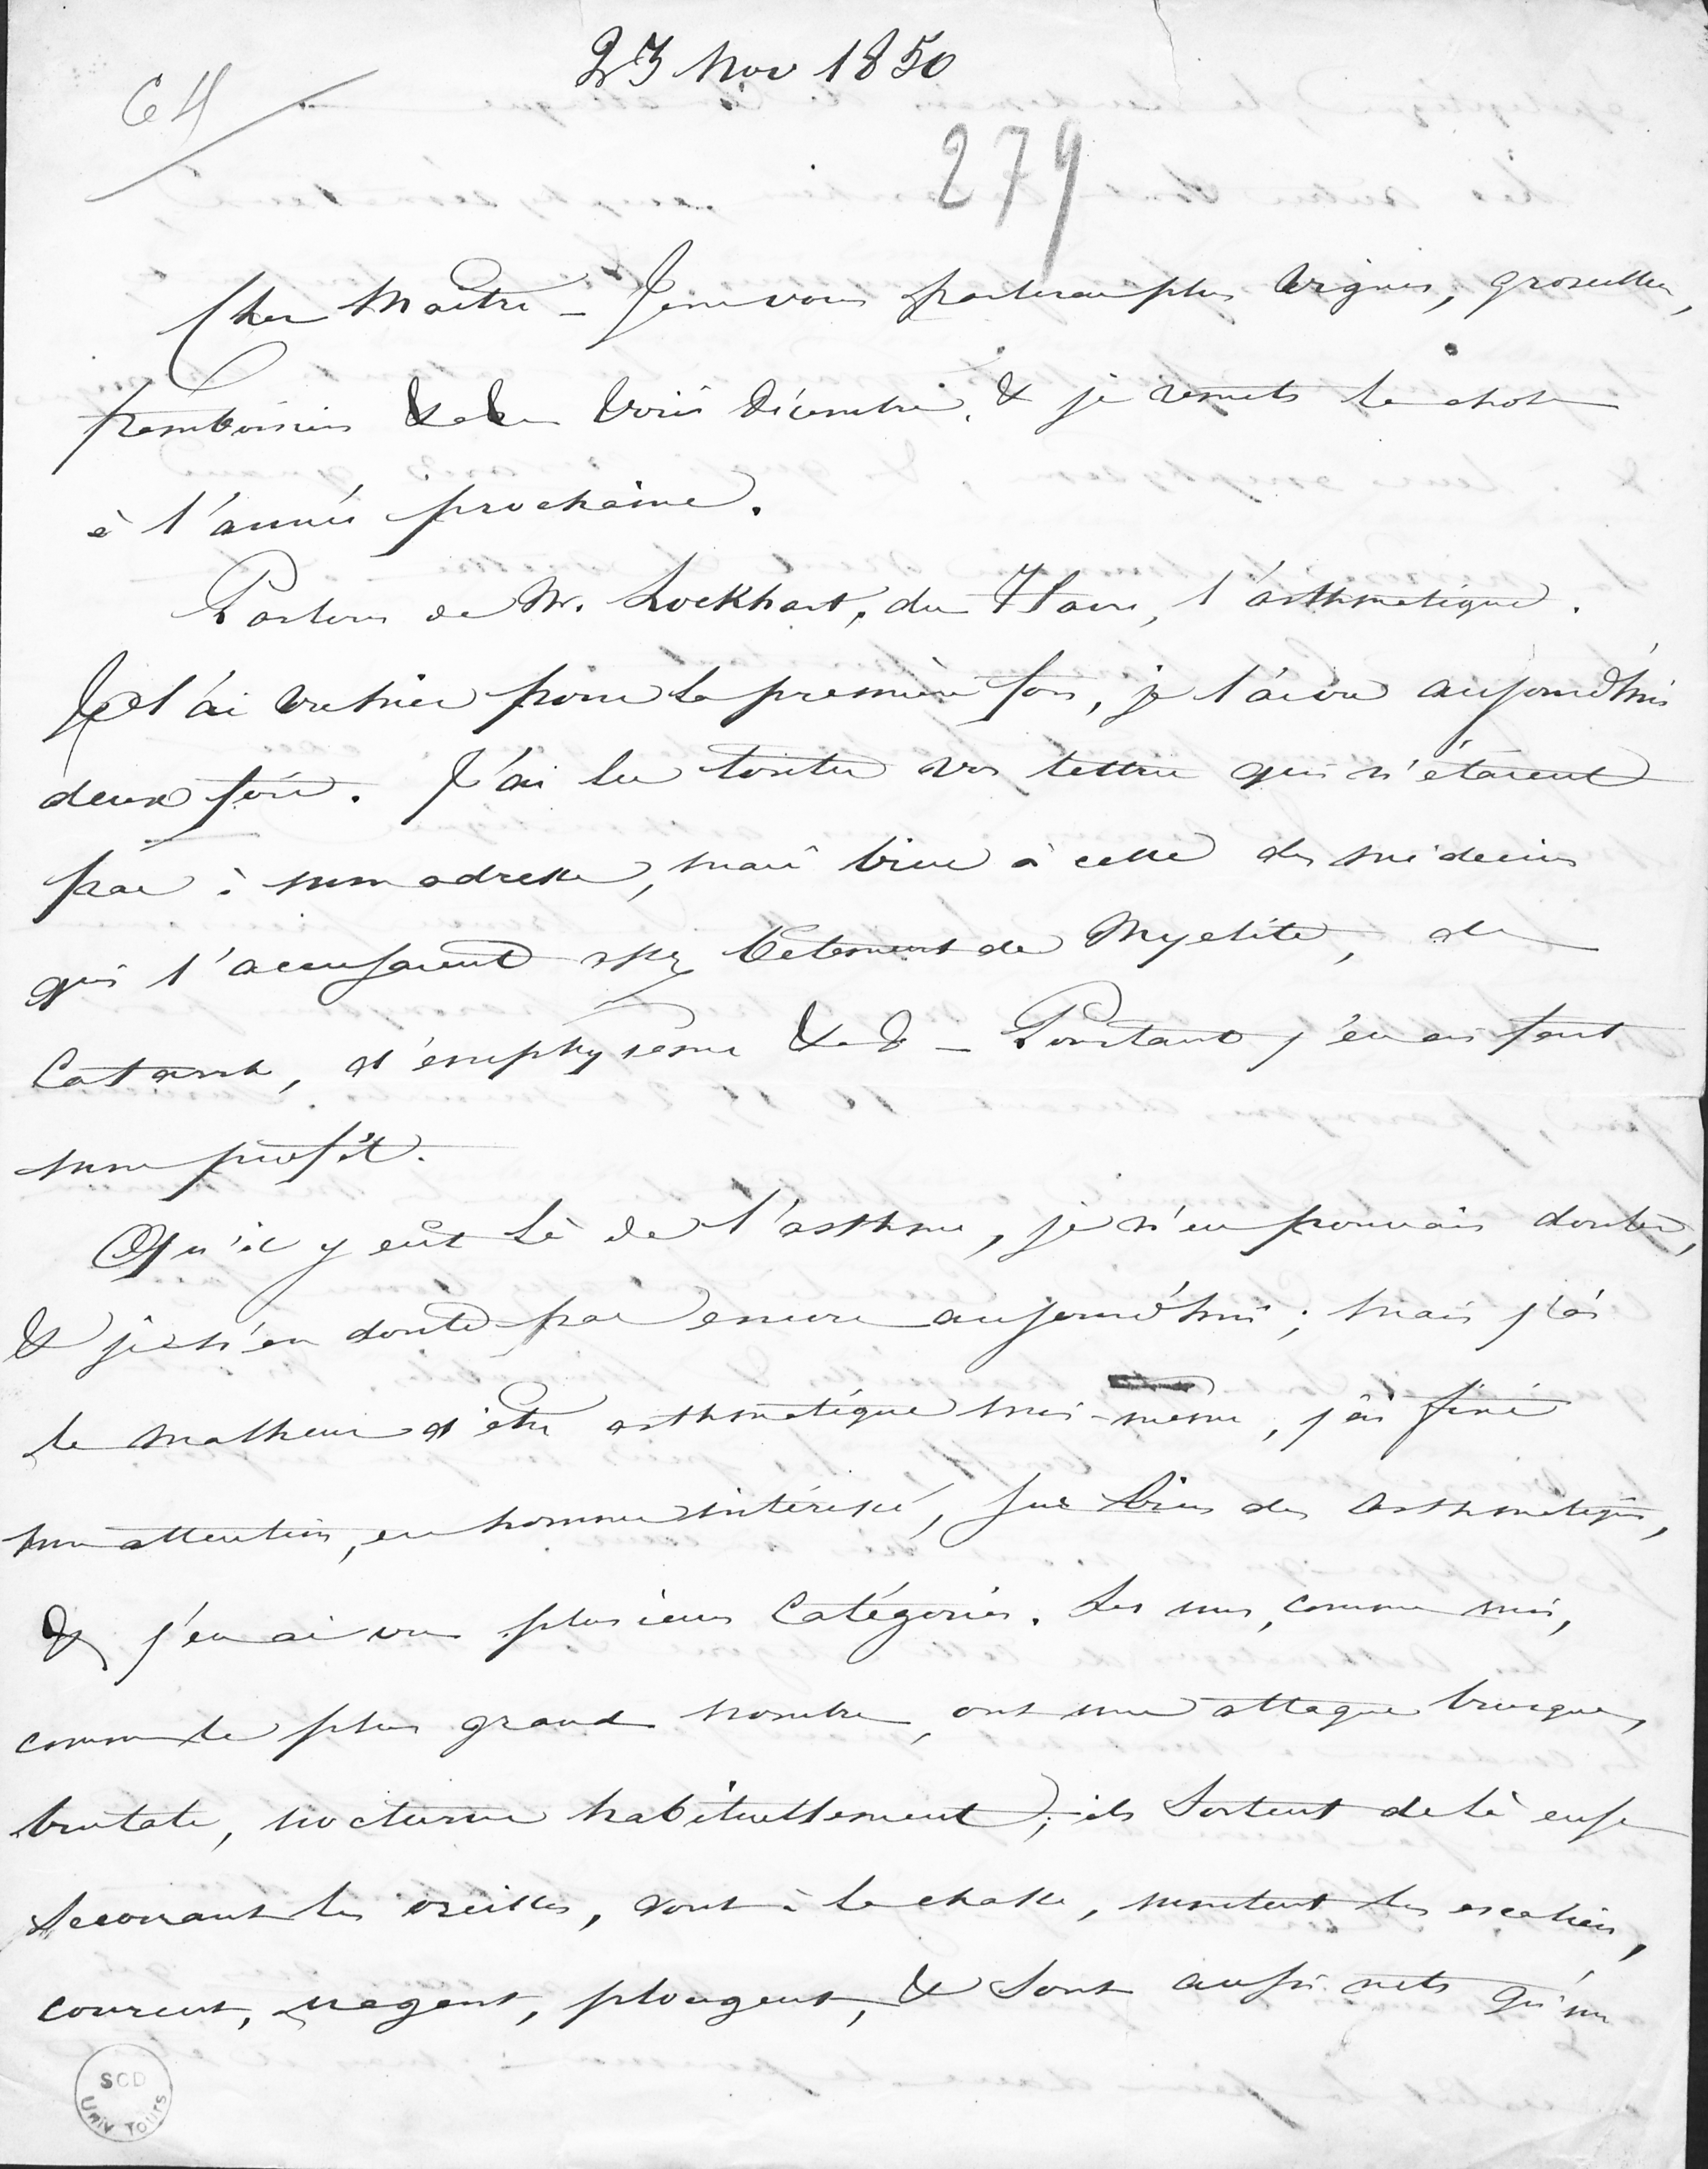 64
23 Nov 1850
279
Cher Maître – Je ne vous parlerai plus vignes, groseillers,
framboisiers &a &a voici décembre, & je remets la chose
à l'année prochaine.
Parlons de Mr. Lockhart, du Havre, l'asthmatique.
Je l'ai vu hier pour la première fois, je l'ai vu aujourd'hui
deux fois. J'ai lu toutes vos lettres qui n'étaient
pas à mon adresse, mais bien à celle des médecins
qui l'accusaient assez bêtement de Myélite, de
Catarrhe, d'emphysème &a & – Pourtant j'en ai fait
mon profit.
Qu'il y eût là de l'asthme, je n'en pouvais douter,
& je n'en doute pas encore aujourd'hui ; mais j'ai
le malheur d'être asthmatique moi-même, j'ai fixé
mon attention, en homme intéressé, sur bien des asthmatiques,
& j'en ai vu plusieurs catégories. Les uns, comme moi,
comme le plus grand nombre, ont une attaque brusque,
brutale, nocturne habituellement ; ils sortent de là en se
secouant les oreilles, vont à la chasse, montent les escaliers,
courent, nagent, plongent, & sont aussi nets qu'un
SCD
Univ TOURS